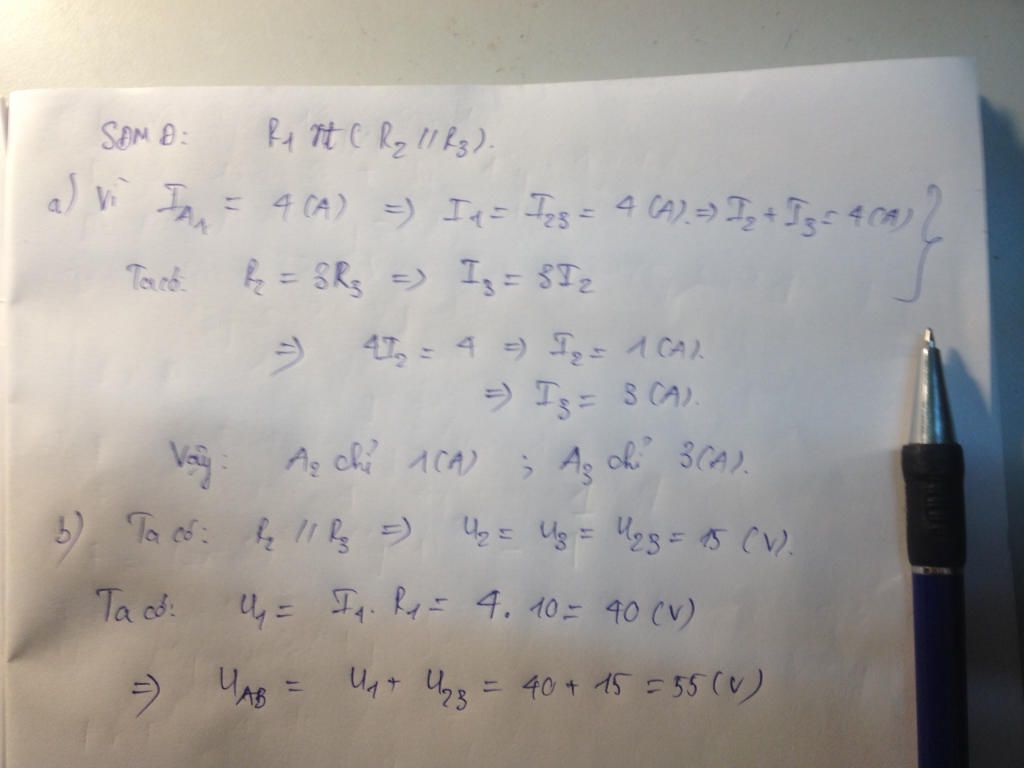 SĐMĐ: R1 nt ( R2 // R3).
a) Vì IA1 = 4 (A) => I1 = I23 = 4 (A). => I2 + I3 = 4 (A) }
Ta có: R2 = 3R3 => I3 = 3I2
=> 4I2 = 4 => I2 = 1 (A).
=> I3 = 3 (A).
Vậy: A2 chỉ 1 (A) ; A3 chỉ 3 (A).
b) Ta có: R2 // R3 => U2 = U3 = U23 = 15 (V).
Ta có: U1 = I1. R1 = 4. 10 = 40 (V)
=> UAB = U1 + U23 = 40 + 15 = 55 (V)